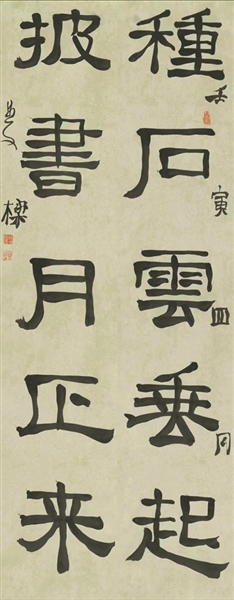 壬寅四月
種石雲垂起
披書月正来
樑